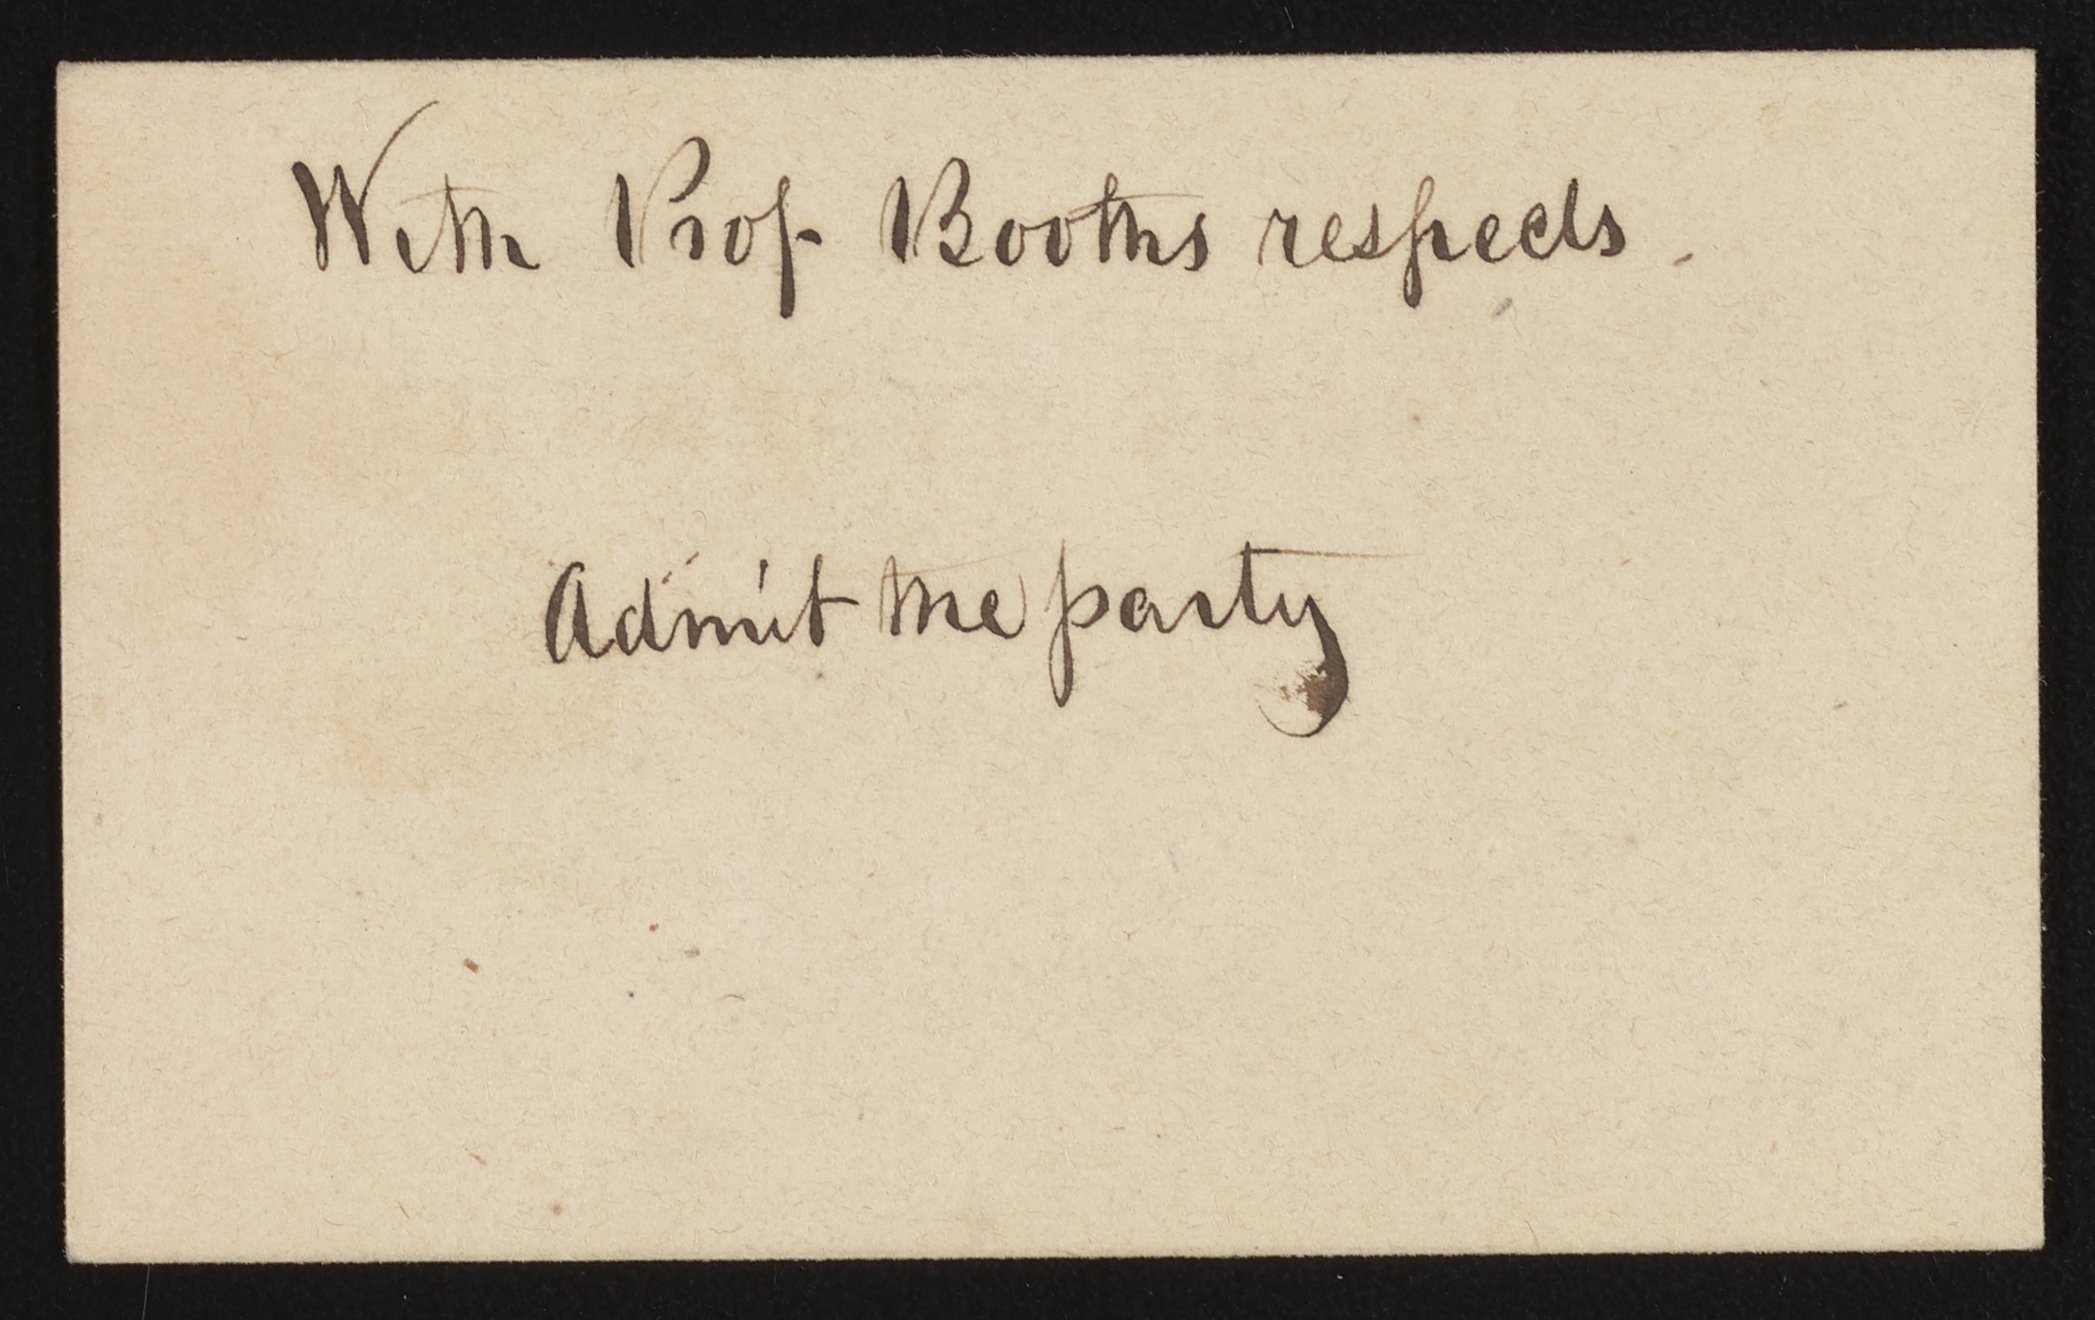 With Prof. Booths respects.
Admit the party